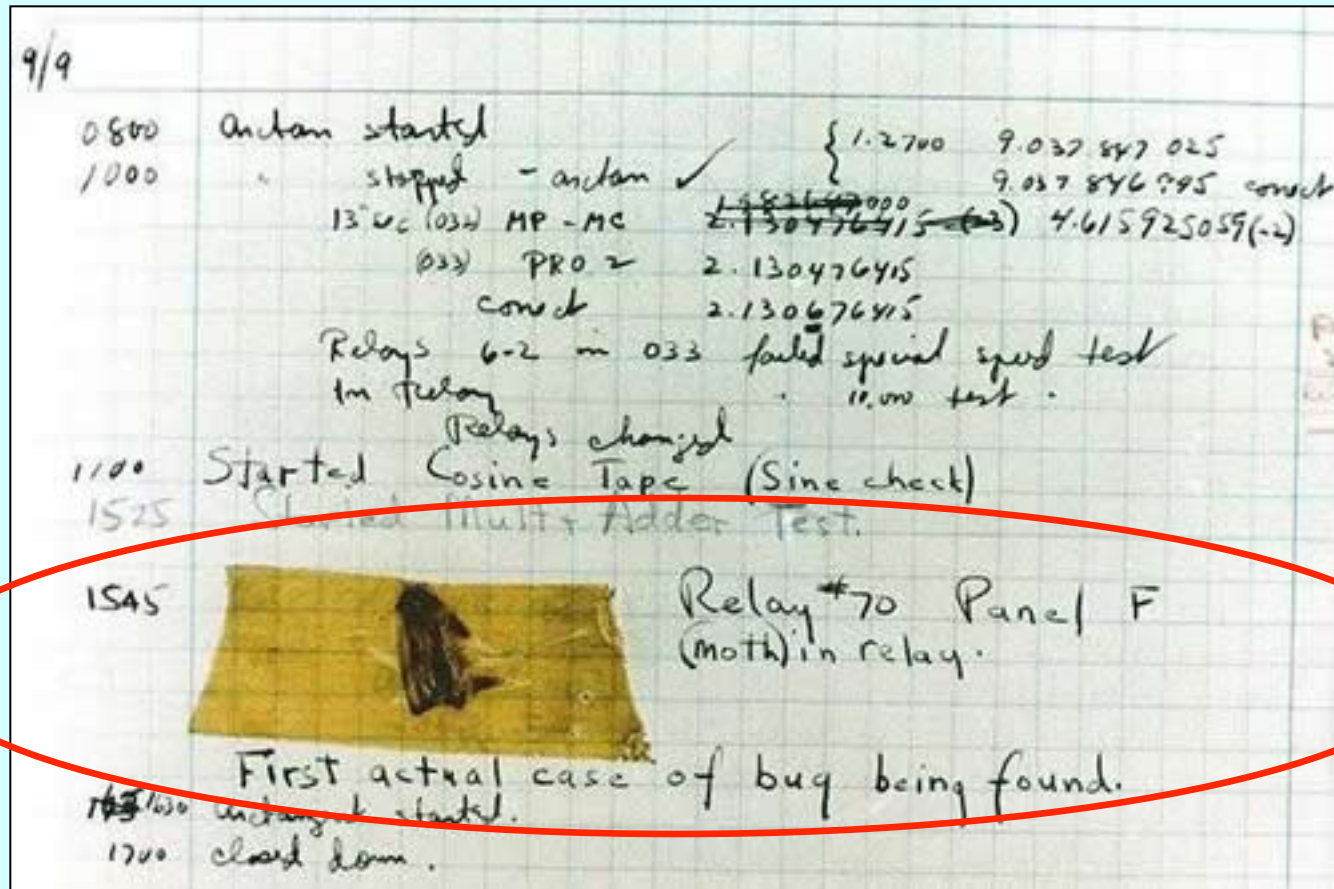 9/9
0800 antan started
1000 " stopped - antan ✓ { 1.2700 9.037 847 025
9.037 846 795 conect
13"uc (032) MP - MC 2.130476415 (-3) 4.615925059(-2)
(033) PRO 2 2.130476415
conect 2.130676415
Relays 6-2 in 033 failed special speed test
In relay " 10.000 test .
Relays changed
1100 Started Cosine Tape (Sine check)
1525 Started Mult + Adder Test.
1545 Relay #70 Panel F
(moth) in relay.
First actual case of bug being found.
1630 antangent started.
1700 closed down.